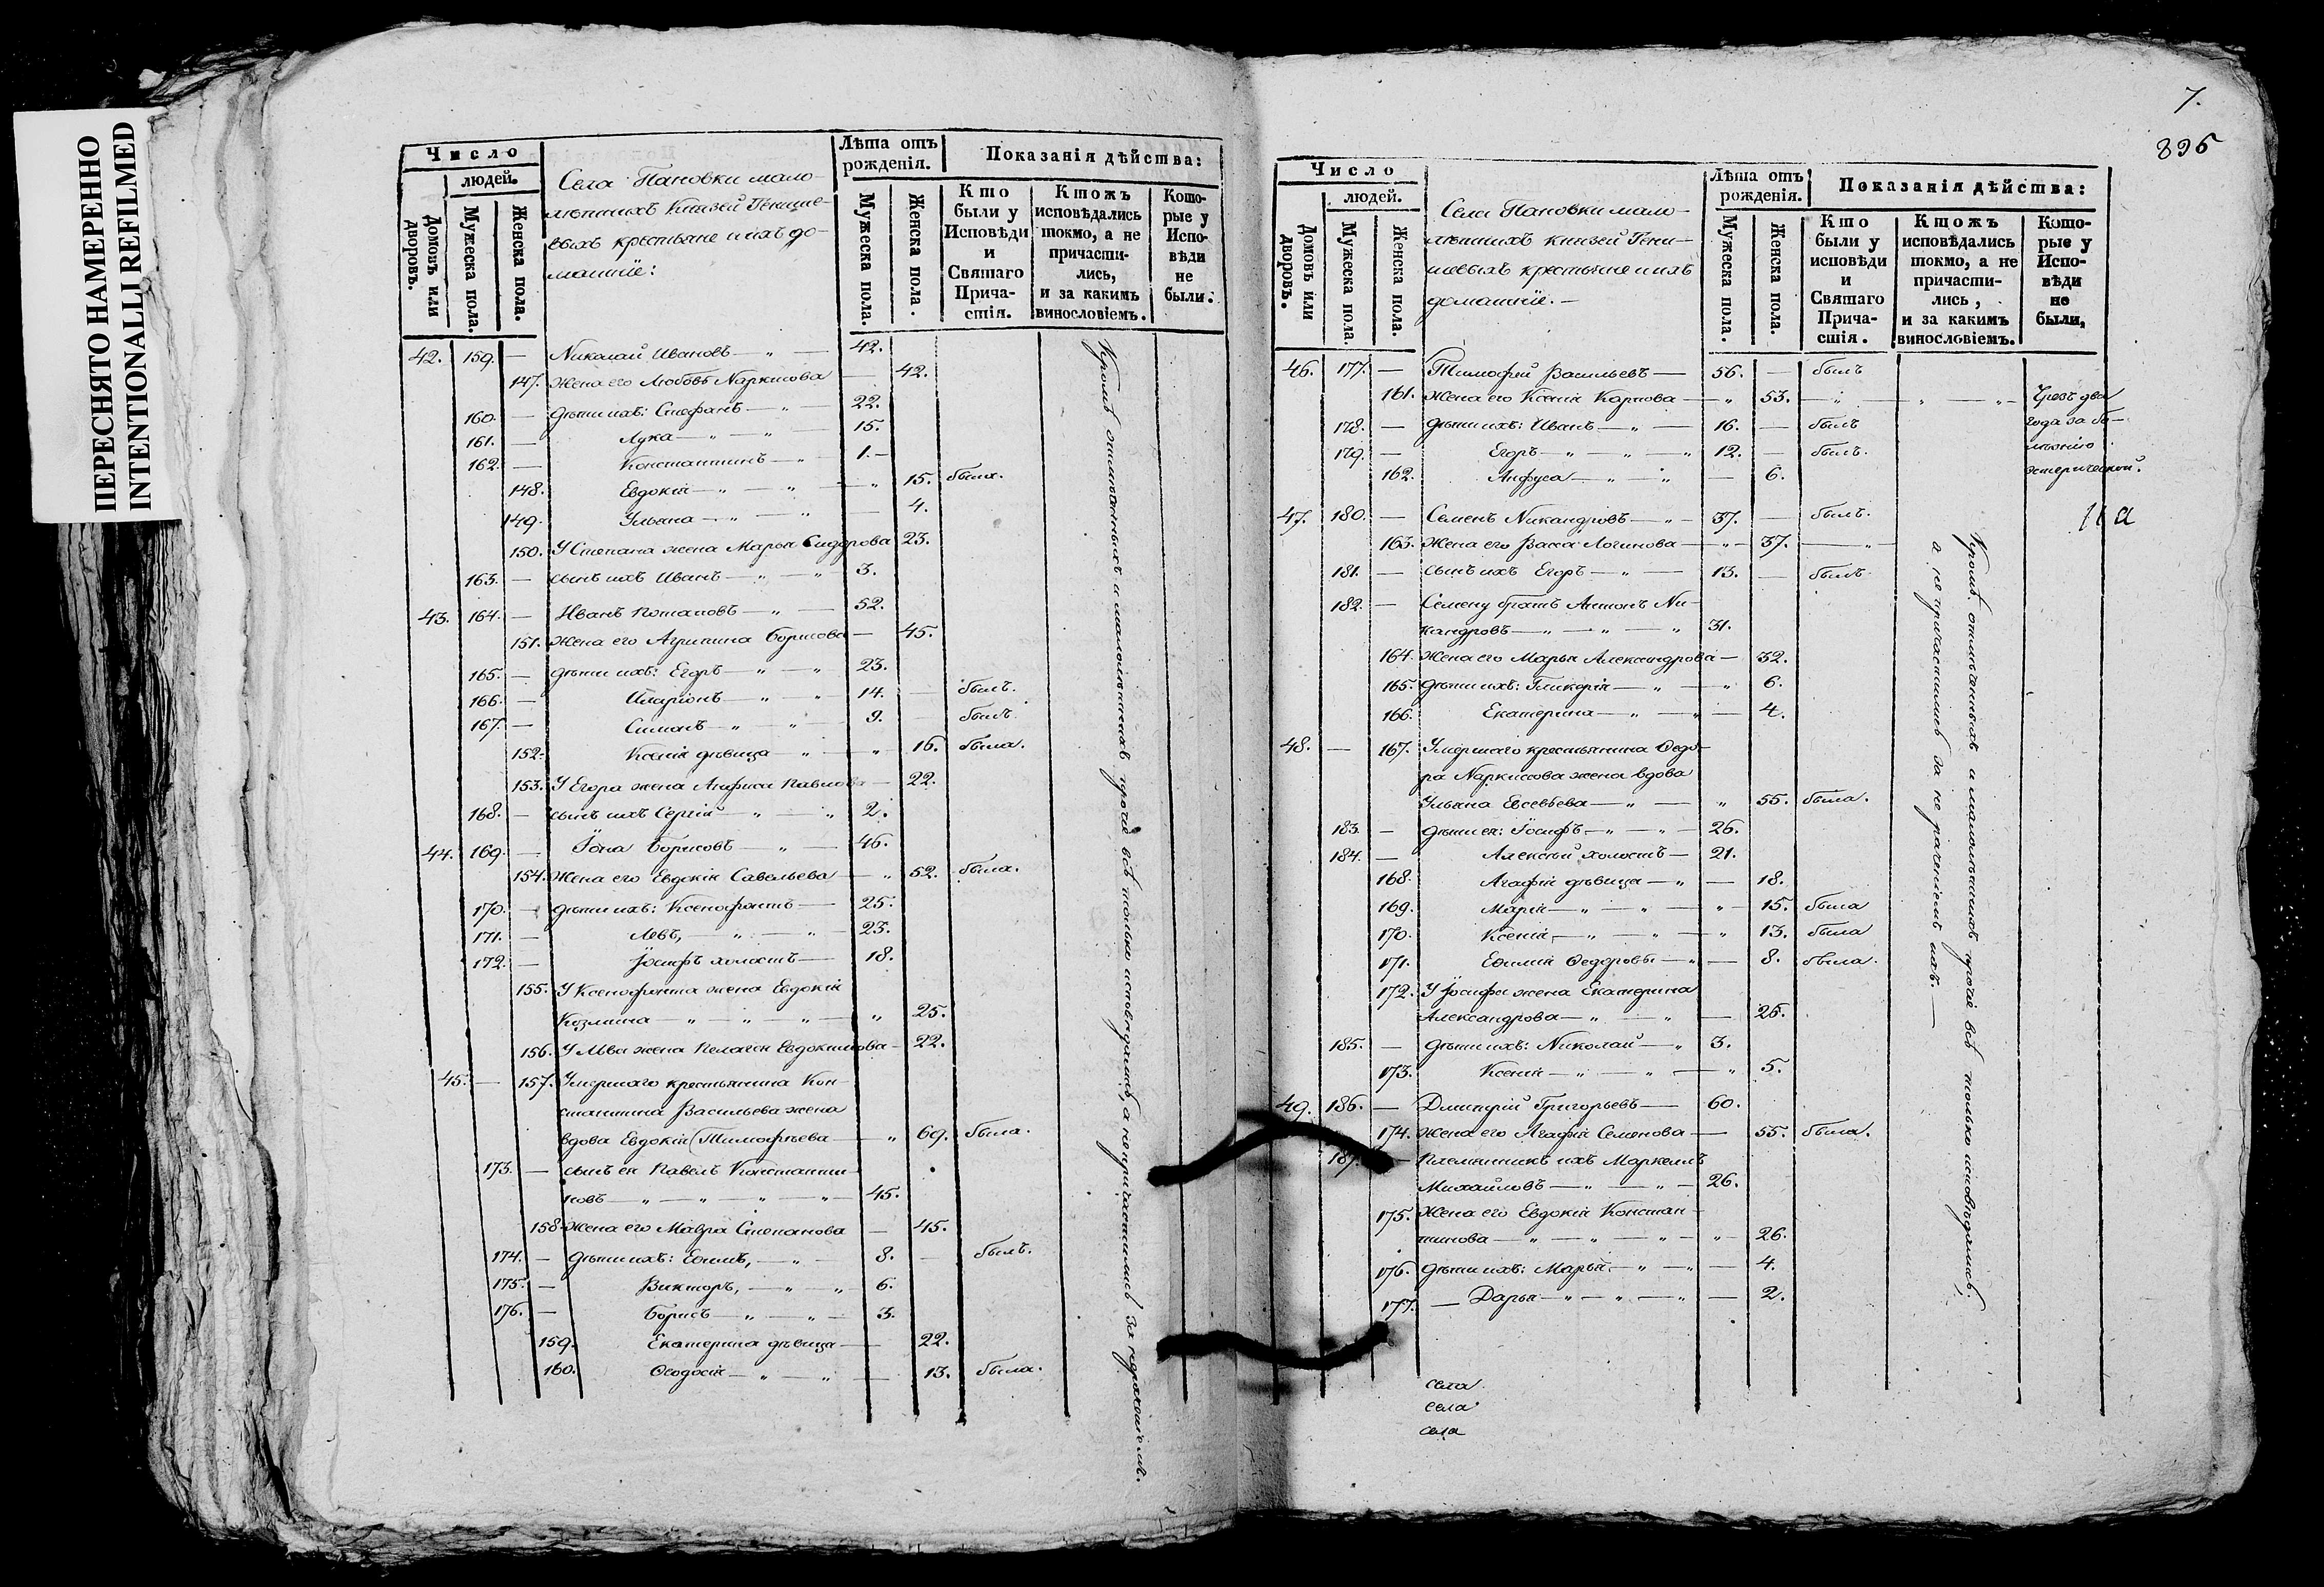 ПЕРЕСНЯТО НАМЕРЕННО
INTENTIONALLI REFILMED
Число
людей.
Домовъ или дворовъ.
Мужеска пола.
Женска пола.
Села Пановки мало-
лѣтнихъ Князей
крестьяне и ихъ до-
машніе:
Лѣта отъ рожденія.
Мужеска пола.
Женска пола.
Показанія дѣйства:
Кто были у Исповѣди и Святаго Причастія.
Ктожъ исповѣдались токмо, а не причастились, и за какимъ винословіемъ.
Которые у Исповѣди не были.
42. 159. — Николай Ивановъ — „ — 42.
147. Жена его Любовь Наркисова — 42.
160. — Дѣти ихъ: Стефанъ — „ — 22.
161. — Лука — „ — „ — 15.
162. — Константинъ — „ 1. —
148. Евдокія — „ — „ — „ 15. была.
149. Ульяна — „ — „ — 4.
150. У Степана жена Марья Сидорова 23.
163. — сынъ ихъ Иванъ — „ — „ 3.
43. 164. — Иванъ Потаповъ — „ — 52.
151. Жена его Агрипина Борисова — 45.
165. — Дѣти ихъ: Егоръ — „ — „ 23.
166. — Иларіонъ — „ — „ 14. — былъ.
167. — Симонъ — „ — „ — 9. былъ.
152. Ксенія дѣвица — „ — „ 16. была.
153. У Егора жена Анфиса Павлова — 22.
168. — сынъ ихъ Сергій — „ — „ 2.
44. 169. — Іона Борисовъ — „ — 46.
154. Жена его Евдокія Савельева — „ 52. была.
170. — Дѣти ихъ: Ксенофонтъ — 25.
171. — Левъ, — „ — „ 23.
172. — Іосифъ холостъ — 18.
155. У Ксенофонта жена Евдокія
Козмина — „ — „ — „ — „ 25.
156. У Льва жена Пелагея Евдокимова — 22.
45. — 157. Умершаго крестьянина Кон-
стантина Васильева жена
вдова Евдокія Тимофѣева — „ 69. была.
173. — сынъ ея Павелъ Константи-
новъ — „ — „ — „ — „ — 45.
158. Жена его Мавра Степанова — 45.
174. — Дѣти ихъ: Ефимъ, — „ — 8. — былъ.
175. — Викторъ, — „ — „ 6.
176. — Борисъ — „ — „ — 3.
159. Екатерина дѣвица — 22.
160. Ѳеодосія — „ — „ — 13. была.
Кромѣ отмѣченныхъ и малолѣтнихъ прочіе всѣ только исповѣдались, а не причастились за нераченіемъ.
7.
895
Число
людей.
Домовъ или дворовъ.
Мужеска пола.
Женска пола.
Села Пановки мало-
лѣтнихъ князей
крестьяне и ихъ
домашніе. —
Лѣта отъ рожденія.
Мужеска пола.
Женска пола.
Показанія дѣйства:
Кто были у исповѣди и Святаго Причастія.
Ктожъ исповѣдались токмо, а не причастились, и за какимъ винословіемъ.
Которые у Исповѣди не были,
46. 177. — Тимофей Васильевъ — 56. — былъ
161. Жена его Ксенія Карпова — „ 53. — „ — „ — „ Чрезъ два
178. — Дѣти ихъ: Иванъ — „ — 16. — былъ года за бо-
179. — Егоръ — „ — „ — „ 12. — былъ. лѣзнію
162. Анфуса — „ — „ — 6. истерической.
47. 180. — Семенъ Никандровъ — „ — 37. — былъ.
11 а
163. Жена его Васса Логинова — „ — 37. — „ —
181. — сынъ ихъ Егоръ — „ — 13. — былъ.
182. — Семену братъ Антонъ Ни-
кандровъ — „ — „ — „ 31.
164. Жена его Марья Александрова — 32.
165. Дѣти ихъ: Гликерія — „ — „ 6.
166. Екатерина — „ — „ — 4.
48. — 167. Умершаго крестьянина Ѳедо-
ра Наркисова жена вдова
Ульяна Евсевьева — „ — „ 55. была.
183. — Дѣти ея: Іосифъ — „ — „ — 26.
184. — Алексѣй холостъ — 21.
168. Агафія дѣвица — „ — 18.
169. Марія — „ — „ — „ 15. была
170. Ксенія, — „ — „ — „ 13. была
171. Ефимія Ѳедоровы — „ — 8. была.
172. У Іосифа жена Екатерина
Александрова — „ — „ — 25.
185. — Дѣти ихъ: Николай — „ 3.
173. Ксенія — „ — „ — „ 5.
49. 186. — Дмитрій Григорьевъ — 60.
174. Жена его Агафія Семенова — 55. была.
187. — Племянникъ ихъ Маркеллъ
Михайловъ — „ — „ — 26.
175. Жена его Евдокія Констан-
тинова — „ — „ — „ — „ 26.
176. Дѣти ихъ: Марья — „ — „ — 4.
177. — Дарья — „ — „ — „ — 2.
Кромѣ отмѣченныхъ и малолѣтнихъ прочіе всѣ только исповѣдались,
а не причастились за не раченіемъ ихъ. —
села
села
села